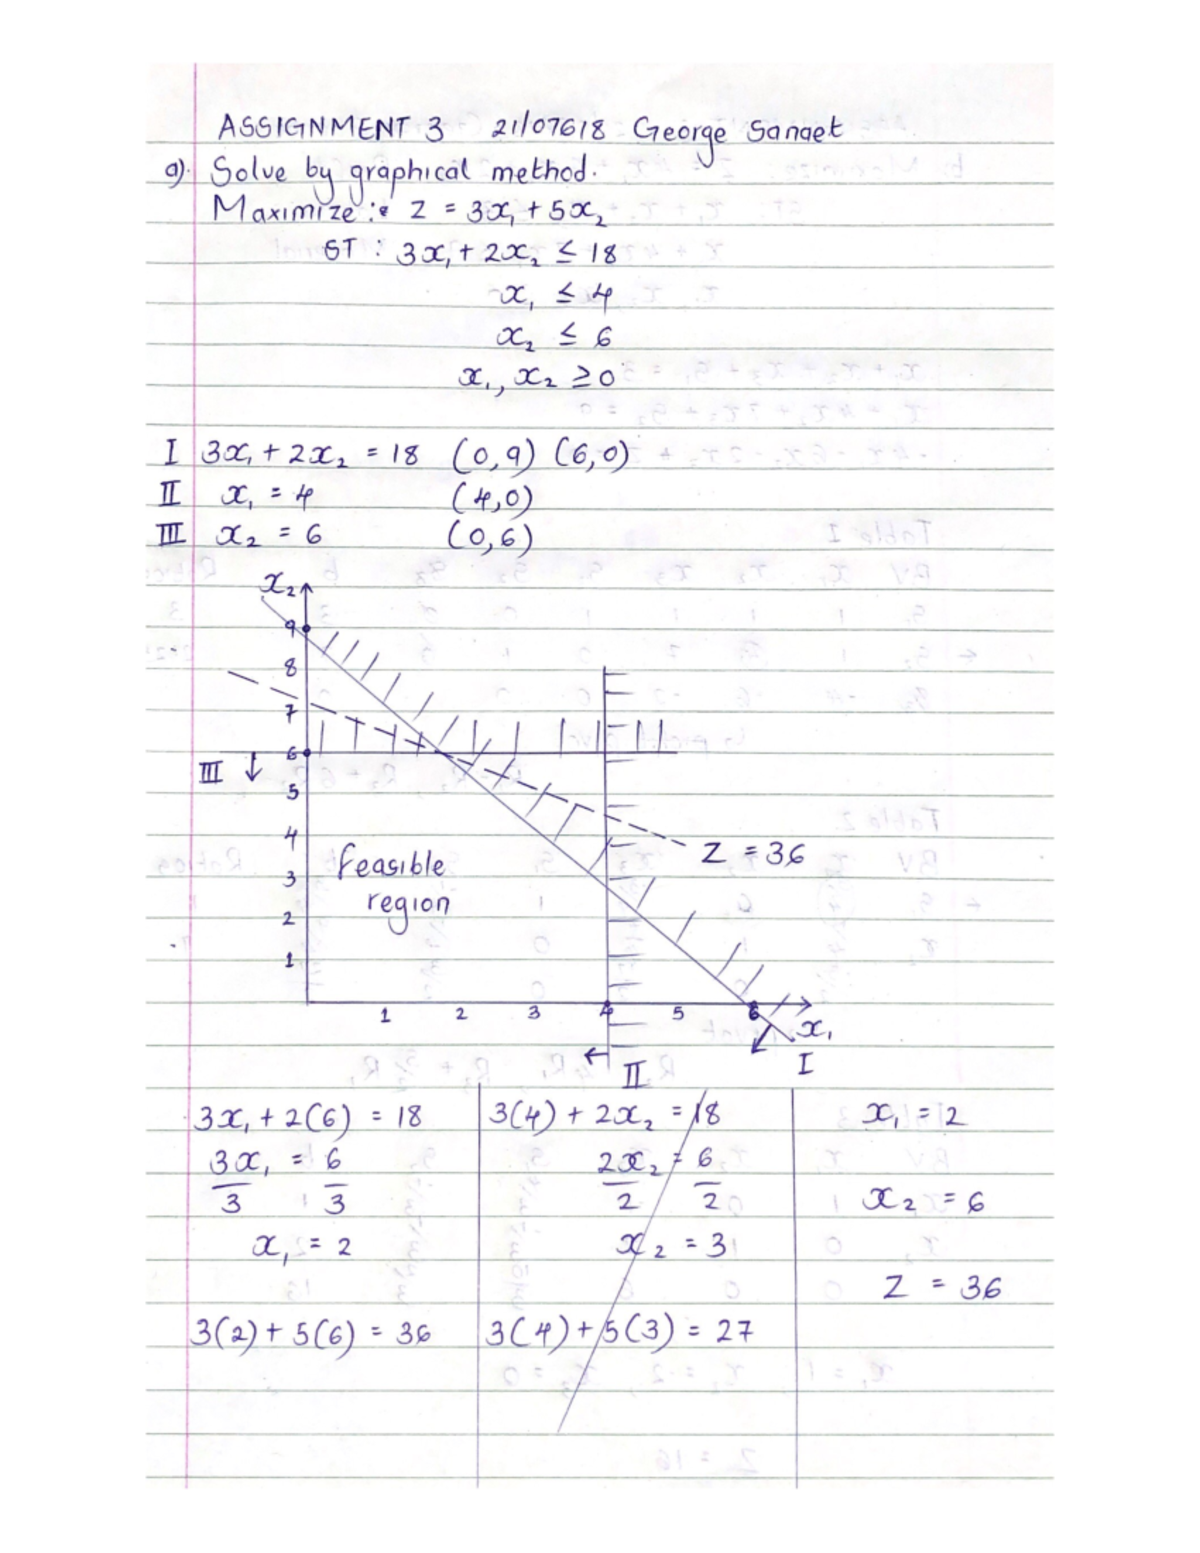 ASSIGNMENT 3 21/07618 George Sanaet
a). Solve by graphical method.
Maximize : Z = 3x₁ + 5x₂
ST : 3x₁ + 2x₂ ≤ 18
x₁ ≤ 4
x₂ ≤ 6
x₁, x₂ ≥ 0
I 3x₁ + 2x₂ = 18 (0,9) (6,0)
II x₁ = 4 (4,0)
III x₂ = 6 (0,6)
x₂
9
8
7
6
III ↓
5
4
Z = 36
3
feasible
region
2
1
1 2 3 4 5 6
x₁
← II
I
3x₁ + 2(6) = 18
3x₁ = 6
3 3
x₁ = 2
3(2) + 5(6) = 36
3(4) + 2x₂ = 18
2x₂ = 6
2 2
x₂ = 3
3(4) + 5(3) = 27
x₁ = 2
x₂ = 6
Z = 36